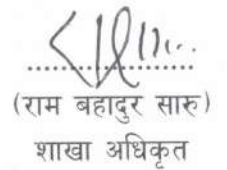 (राम बहादुर सारु)
शाखा अधिकृत